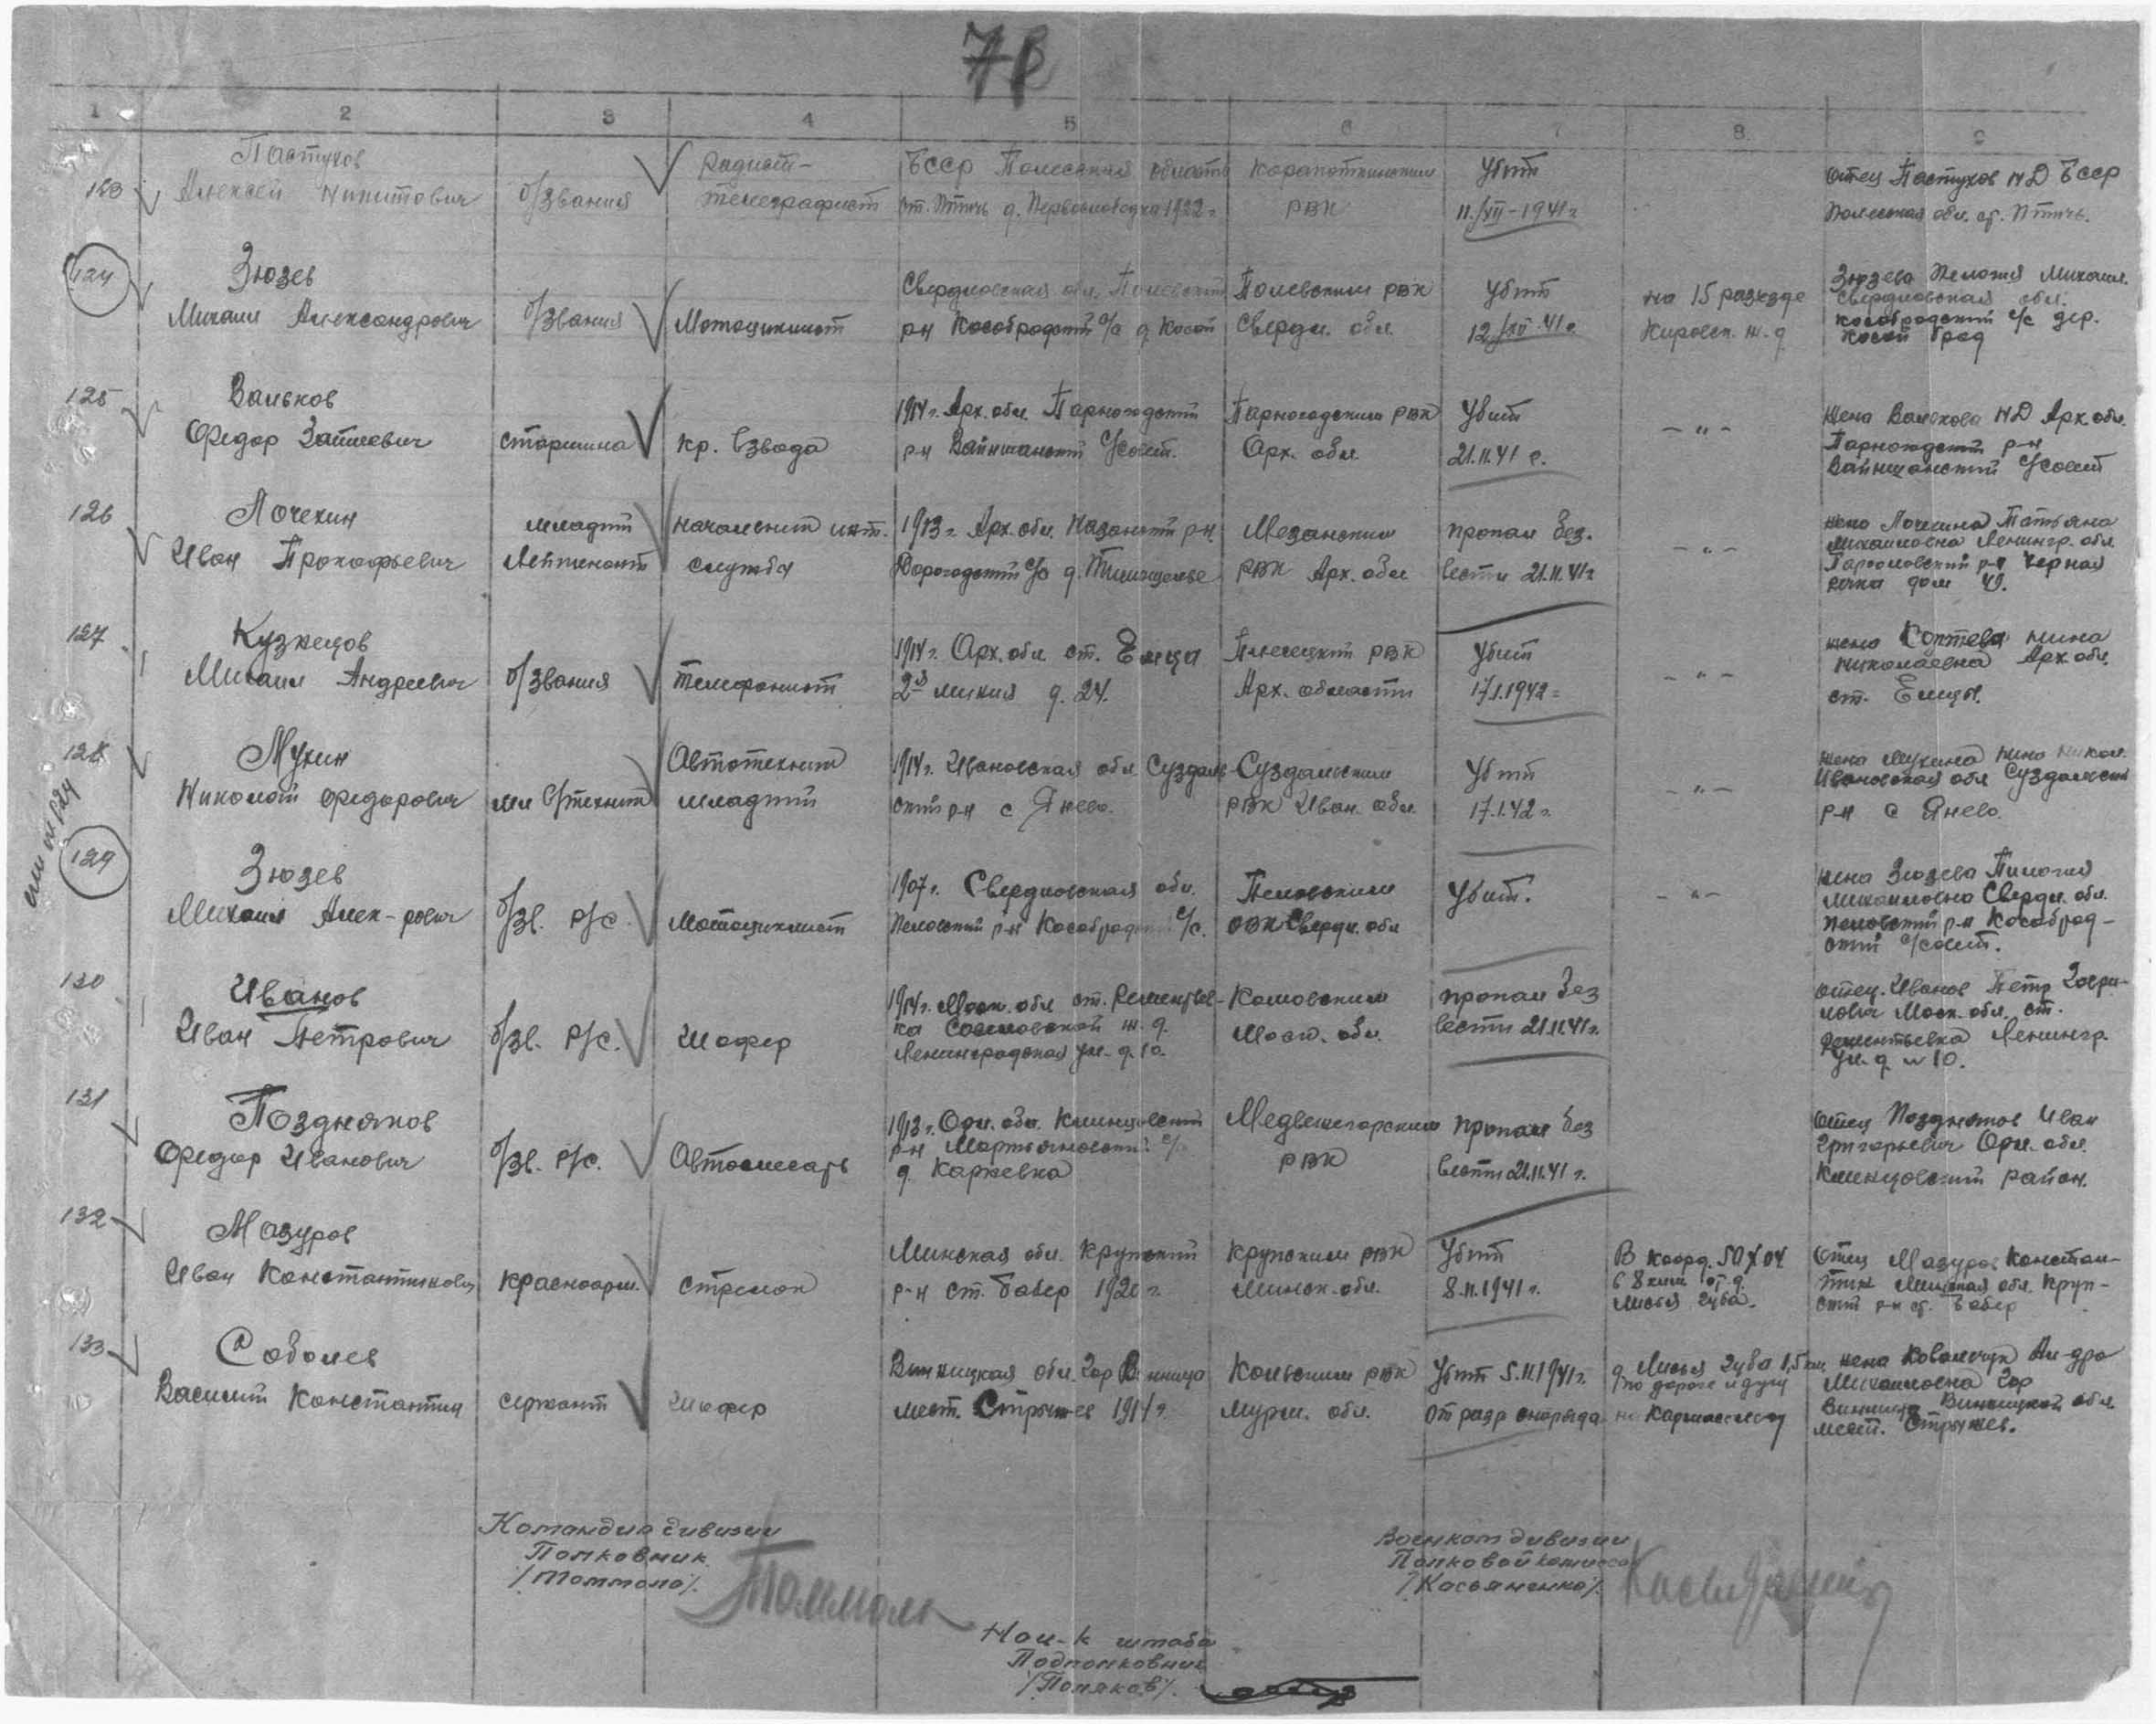 78
1 2 3 4 5 6 7 8 9
123 Пастухов Алексей Никитович
б/звания
радист-
телеграфист
БССР Полесская область
ст. Птичь д. 1922 г.
РВК
Убит
11./XII-1941 г
отец Пастухов НД БССР
Полесская обл. ст. Птичь.
124 Зюзев
Михаил Александрович
б/звания
Мотоциклист
Свердловская обл. Полевской
р-н Кособродский с/с д. Косой
Полевским РВК
Свердл. обл.
Убит
12/XII-41 г.
на 15 разъезде
Кировск. ж.д
Зюзева Пелогия Михаил.
Свердловская обл.
Кособродский с/с дер.
Косой брод
125 Вальков
Федор
старшина
кр. взвода
1914 г. Арх. обл. Тарногодский
р-н с/совет.
Тарногодским РВК
Арх. обл.
Убит
21.11.41 г.
- " -
жена Валькова НД Арх. обл.
Тарногодский р-н
с/совет
126 Лочехин
Иван Прокофьевич
младший
лейтенант
начальник инт.
службы
1913 г. Арх. обл. р-н.
Дорогодский с/с д.
Мезанским
РВК Арх. обл
пропал без.
вести 21.11.41 г
- " -
жена Лочехина Татьяна
Михайловна Ленингр. обл.
р-н Черная
речка дом 49.
127 Кузнецов
Михаил Андреевич
б/звания
Телефонист
1914 г. Арх. обл. ст. Емца
2я линия д. 24.
Плесецким РВК
Арх. области
Убит
17.1.1942 г
- " -
жена Коптева Нина
Николаевна Арх обл.
ст. Емцы.
128 Мухин
Николай Федорович
мл в/техник
Автотехник
младший
1914 г. Ивановская обл. Суздаль-
ский р-н с Янево.
Суздальским
РВК Иван. обл.
Убит
17.1.42 г.
- " -
жена Мухина Нина Никол.
Ивановская обл Суздальский
р-н с Янево.
129 Зюзев
Михаил Алек-рович
б/зв. р/с.
Мотоциклист
1907 г. Свердловская обл.
Пелевский р-н Кособродский с/с.
Пелевским
РВК Свердл. обл
Убит.
- " -
жена Зюзева Пилогия
Михайловна Свердл. обл.
Пелевский р-н Кособрод-
ский с/совет.
130 Иванов
Иван Петрович
б/зв. р/с.
Шофер
1914 г. Моск. обл ст. Дементьев-
ка ж.д.
Ленинградская ул. д. 10.
Моск. обл.
пропал без
вести 21.11.41 г.
отец. Иванов Петр Гаври-
лович Моск. обл. ст.
Дементьевка Ленингр.
ул. д. № 10.
131 Поздняков
Федор Иванович
б/зв. р/с.
Автослесарь
1913 г. Орл. обл. Клинцовский
р-н Мартьяновский с/с
д. Каржевка
Медвежегорским
РВК
пропал без
вести 21.11.41 г.
отец Поздняков Иван
Григорьевич Орл. обл.
Клинцовский район.
132 Мазуров
Иван Константинович
красноарм.
стрелок
Минская обл. Крупский
р-н ст. Бобер 1920 г.
Крупским РВК
Минск. обл.
Убит
8.11.1941 г.
В коорд. 50 х 04
в 8 килм от д.
Лисья губа.
Отец Мазуров Констан-
тин Минская обл. Круп-
ский р-н ст. Бобер
133 Соболев
Василий Константин
сержант
Шофер
Винницкая обл. гор Винница
мест. Стрижев 1914 г.
Кольским РВК
Мурм. обл.
Убит 5.11.1941 г.
от разр снаряда
д Лисья губа 1,5 км.
по дороге идущ
на
жена Ковальчук Ал-дра
Михайловна гор
Винница Винницкой обл.
мест. Стрижев.
Командир дивизии
Полковник
/Томмола/.
Томмола
Военком дивизии
Полковой комисса
/Касьяненко/.
Касьяненко
Нач-к штаба
Подполковник
/Поляков/.